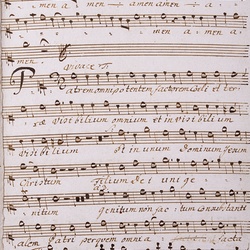 a men amen amen a
a men a
men. Vivace
Patrem omnipotentem factorem coeli et ter
rae visibilium omnium et invisibilium
visibilium et in unum Dominum Jesum
Christum filium Dei unige
nitum genitum non factum consubstanti
alem Patri per quem omnia facta